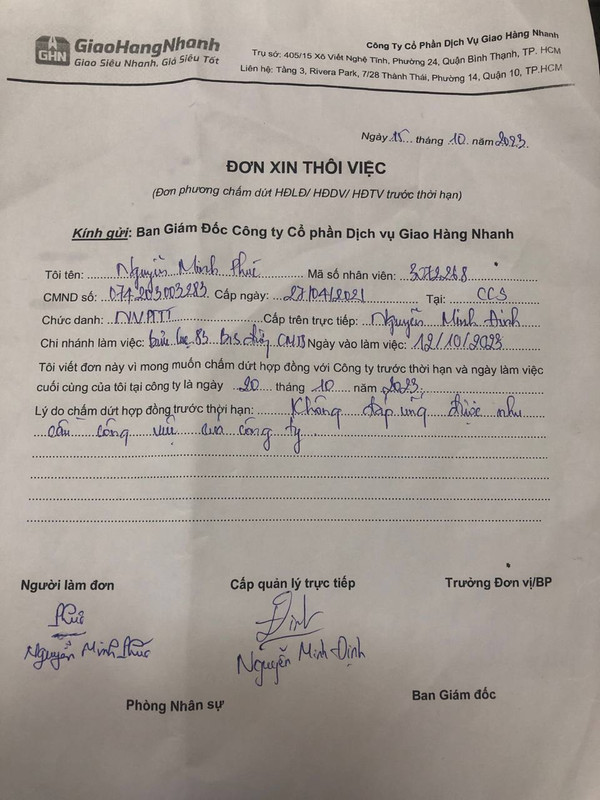 GHN
GiaoHangNhanh
Giao Siêu Nhanh, Giá Siêu Tốt
Công Ty Cổ Phần Dịch Vụ Giao Hàng Nhanh
Trụ sở: 405/15 Xô Viết Nghệ Tĩnh, Phường 24, Quận Bình Thạnh, TP. HCM
Liên hệ: Tầng 3, Rivera Park, 7/28 Thành Thái, Phường 14, Quận 10, TP.HCM
Ngày 15 tháng 10. năm 2023.
ĐƠN XIN THÔI VIỆC
(Đơn phương chấm dứt HĐLĐ/ HĐDV/ HĐTV trước thời hạn)
Kính gửi: Ban Giám Đốc Công ty Cổ phần Dịch vụ Giao Hàng Nhanh
Tôi tên: Nguyễn Minh Phúc Mã số nhân viên: 3072268
CMND số: 074203003283 Cấp ngày: 27/04/2021 Tại: CCS
Chức danh: NVPTTT Cấp trên trực tiếp: Nguyễn Minh Định
Chi nhánh làm việc: bưu cục 83 Bis Ngày vào làm việc: 12/10/2023
Tôi viết đơn này vì mong muốn chấm dứt hợp đồng với Công ty trước thời hạn và ngày làm việc
cuối cùng của tôi tại công ty là ngày 20 tháng 10 năm 2023
Lý do chấm dứt hợp đồng trước thời hạn: Không đáp ứng được nhu
cầu công việc của công ty.
Người làm đơn
Cấp quản lý trực tiếp
Trưởng Đơn vị/BP
Phúc
Định
Nguyễn Minh Phúc
Nguyễn Minh Định
Phòng Nhân sự
Ban Giám đốc